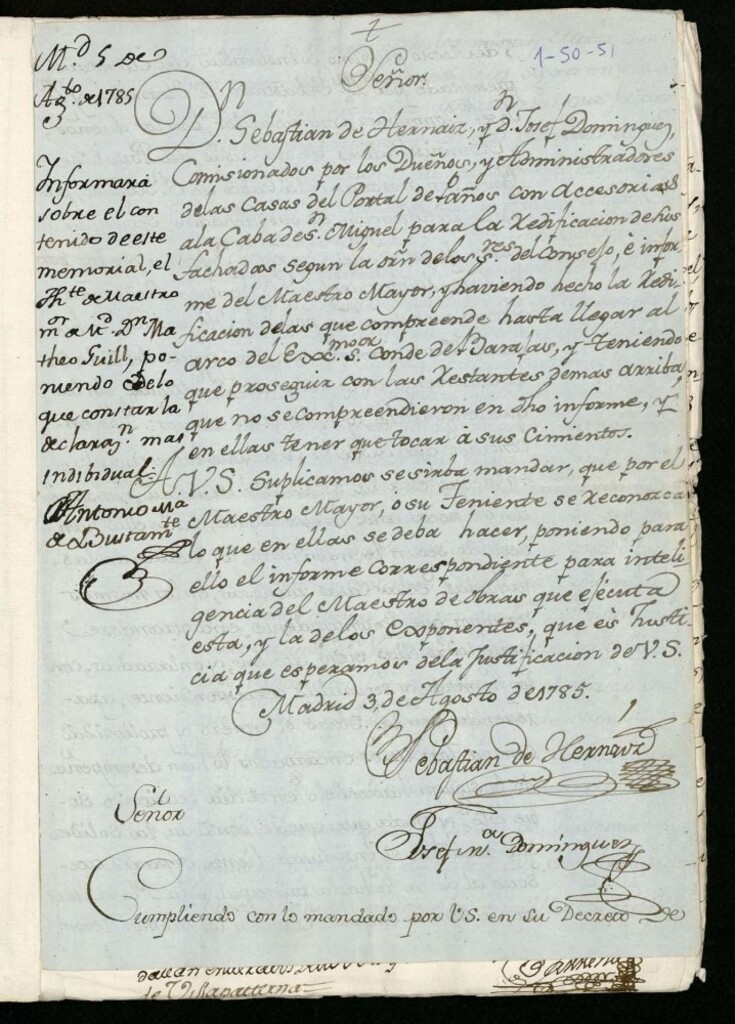 1-50-51
M.d 5 de
Ag.to de 1785
Informará
sobre el con
tenido de este
memorial, el
Th.te de Maestro
m.or de M.d D.n Ma
theo Guill, po-
niendo delo
que constar la
declaraz.n mas
individual.
Antonio Ma
de Bustam.te
Señor.
D.n Sebastian de Hernaiz, y d.n Josef Dominguez,
Comisionados por los Dueños, y Administradores
delas Casas del Portal de Paños con Accesorias
ala Caba de S.n Miguel para la Redificacion de sus
fachadas segun la orñ delos S.res del Consejo, è infor-
me del Maestro Mayor, y haviendo hecho la Redi-
ficacion delas que compreende hasta llegar al
arco del Exc.mo S.or Conde de Barajas, y Teniendo
que proseguir con las Restantes demas arriba,
que no se compreendieron en dho informe, y
en ellas tener que tocar à sus Cimientos.
A. V.S. Suplicamos se sirba mandar, que por el
Maestro Mayor, ò su Teniente se Reconozca
lo que en ellas se deba hacer, poniendo para
ello el informe Correspondiente para inteli
gencia del Maestro de obras que ejecuta
esta, y la delos exponentes, que es Justi-
cia que esperamos dela Justificacion de V.S.
Madrid 3, de Agosto de 1785.
Sebastian de Hernaiz
Josef Dominguez
Señor
Cumpliendo con lo mandado por V.S. en su Decreto de